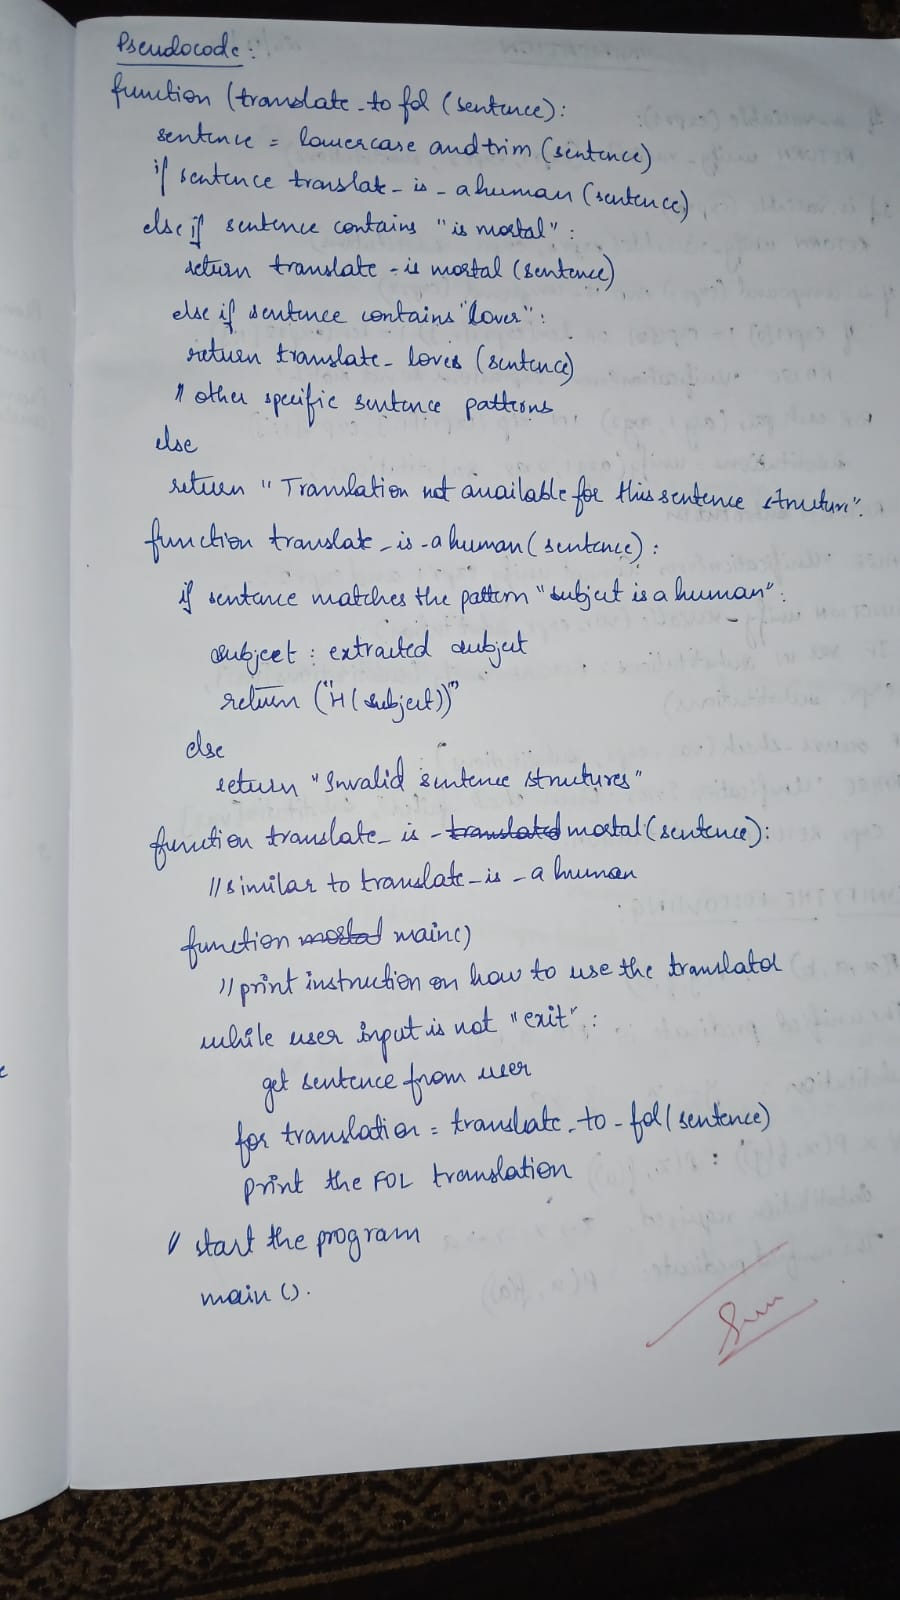 Pseudocode:
function (translate-to fol (sentence):
sentence = lowercase and trim (sentence)
if sentence translate-is-a human (sentence)
else if sentence contains "is mortal":
return translate-is mortal (sentence)
else if sentence contains "loves":
return translate-loves (sentence)
// other specific sentence patterns
else
return "Translation not available for this sentence struture".
function translate-is-a human (sentence):
if sentence matches the pattern "subject is a human":
subject: extracted subject
return ("H(subject))"
else
return "Invalid sentence strutures"
function translate-is-translated mortal (sentence):
//similar to translate-is-a human
function mortal main()
//print instruction on how to use the translator
while user input is not "exit":
get sentence from user
for translation = translate-to-fol (sentence)
print the FOL translation
// start the program
main ().